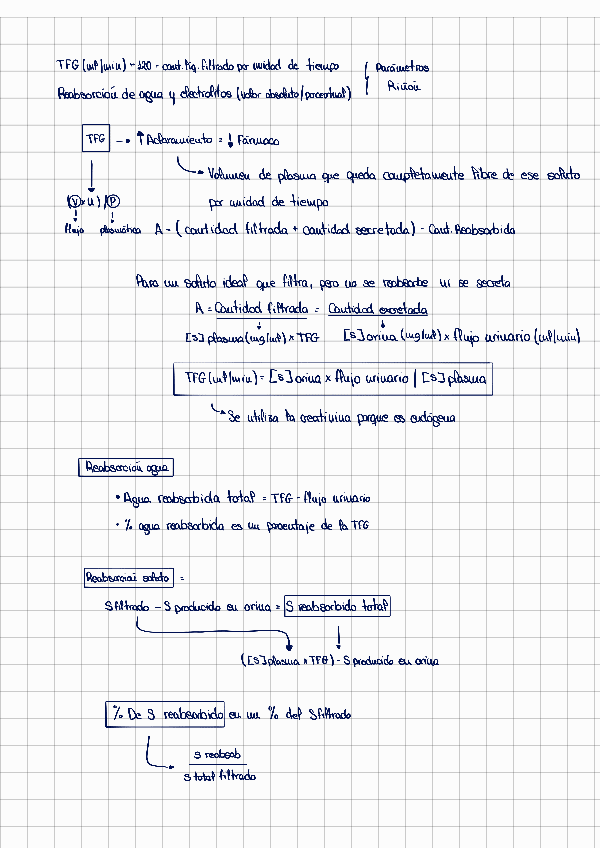 TFG (ml/min) - 120 - cant. liq. filtrado por unidad de tiempo
Parámetros
Riñón
Reabsorción de agua y electrolitos (valor absoluto/porcentual)
TFG → ↑ Aclaramiento = ↓ Fármaco
Volumen de plasma que queda completamente libre de ese soluto
por unidad de tiempo
(V × u) / P
flujo plasmática A - (cantidad filtrada + cantidad secretada) - Cant. Reabsorbida
Para un soluto ideal que filtra, pero no se reabsorbe ni se secreta
A = Cantidad filtrada = Cantidad excretada
[S] plasma (mg/ml) × TFG [S] orina (mg/ml) × flujo urinario (ml/min)
TFG (ml/min) = [S] orina × flujo urinario / [S] plasma
Se utiliza la creatinina porque es endógena
Reabsorción agua
• Agua reabsorbida total = TFG - flujo urinario
• % agua reabsorbida es un porcentaje de la TFG
Reabsorción soluto =
S filtrado - S producido en orina = S reabsorbido total
([S] plasma × TFG) - S producido en orina
% De S reabsorbido en un % del S filtrado
S reabsorb
S total filtrado